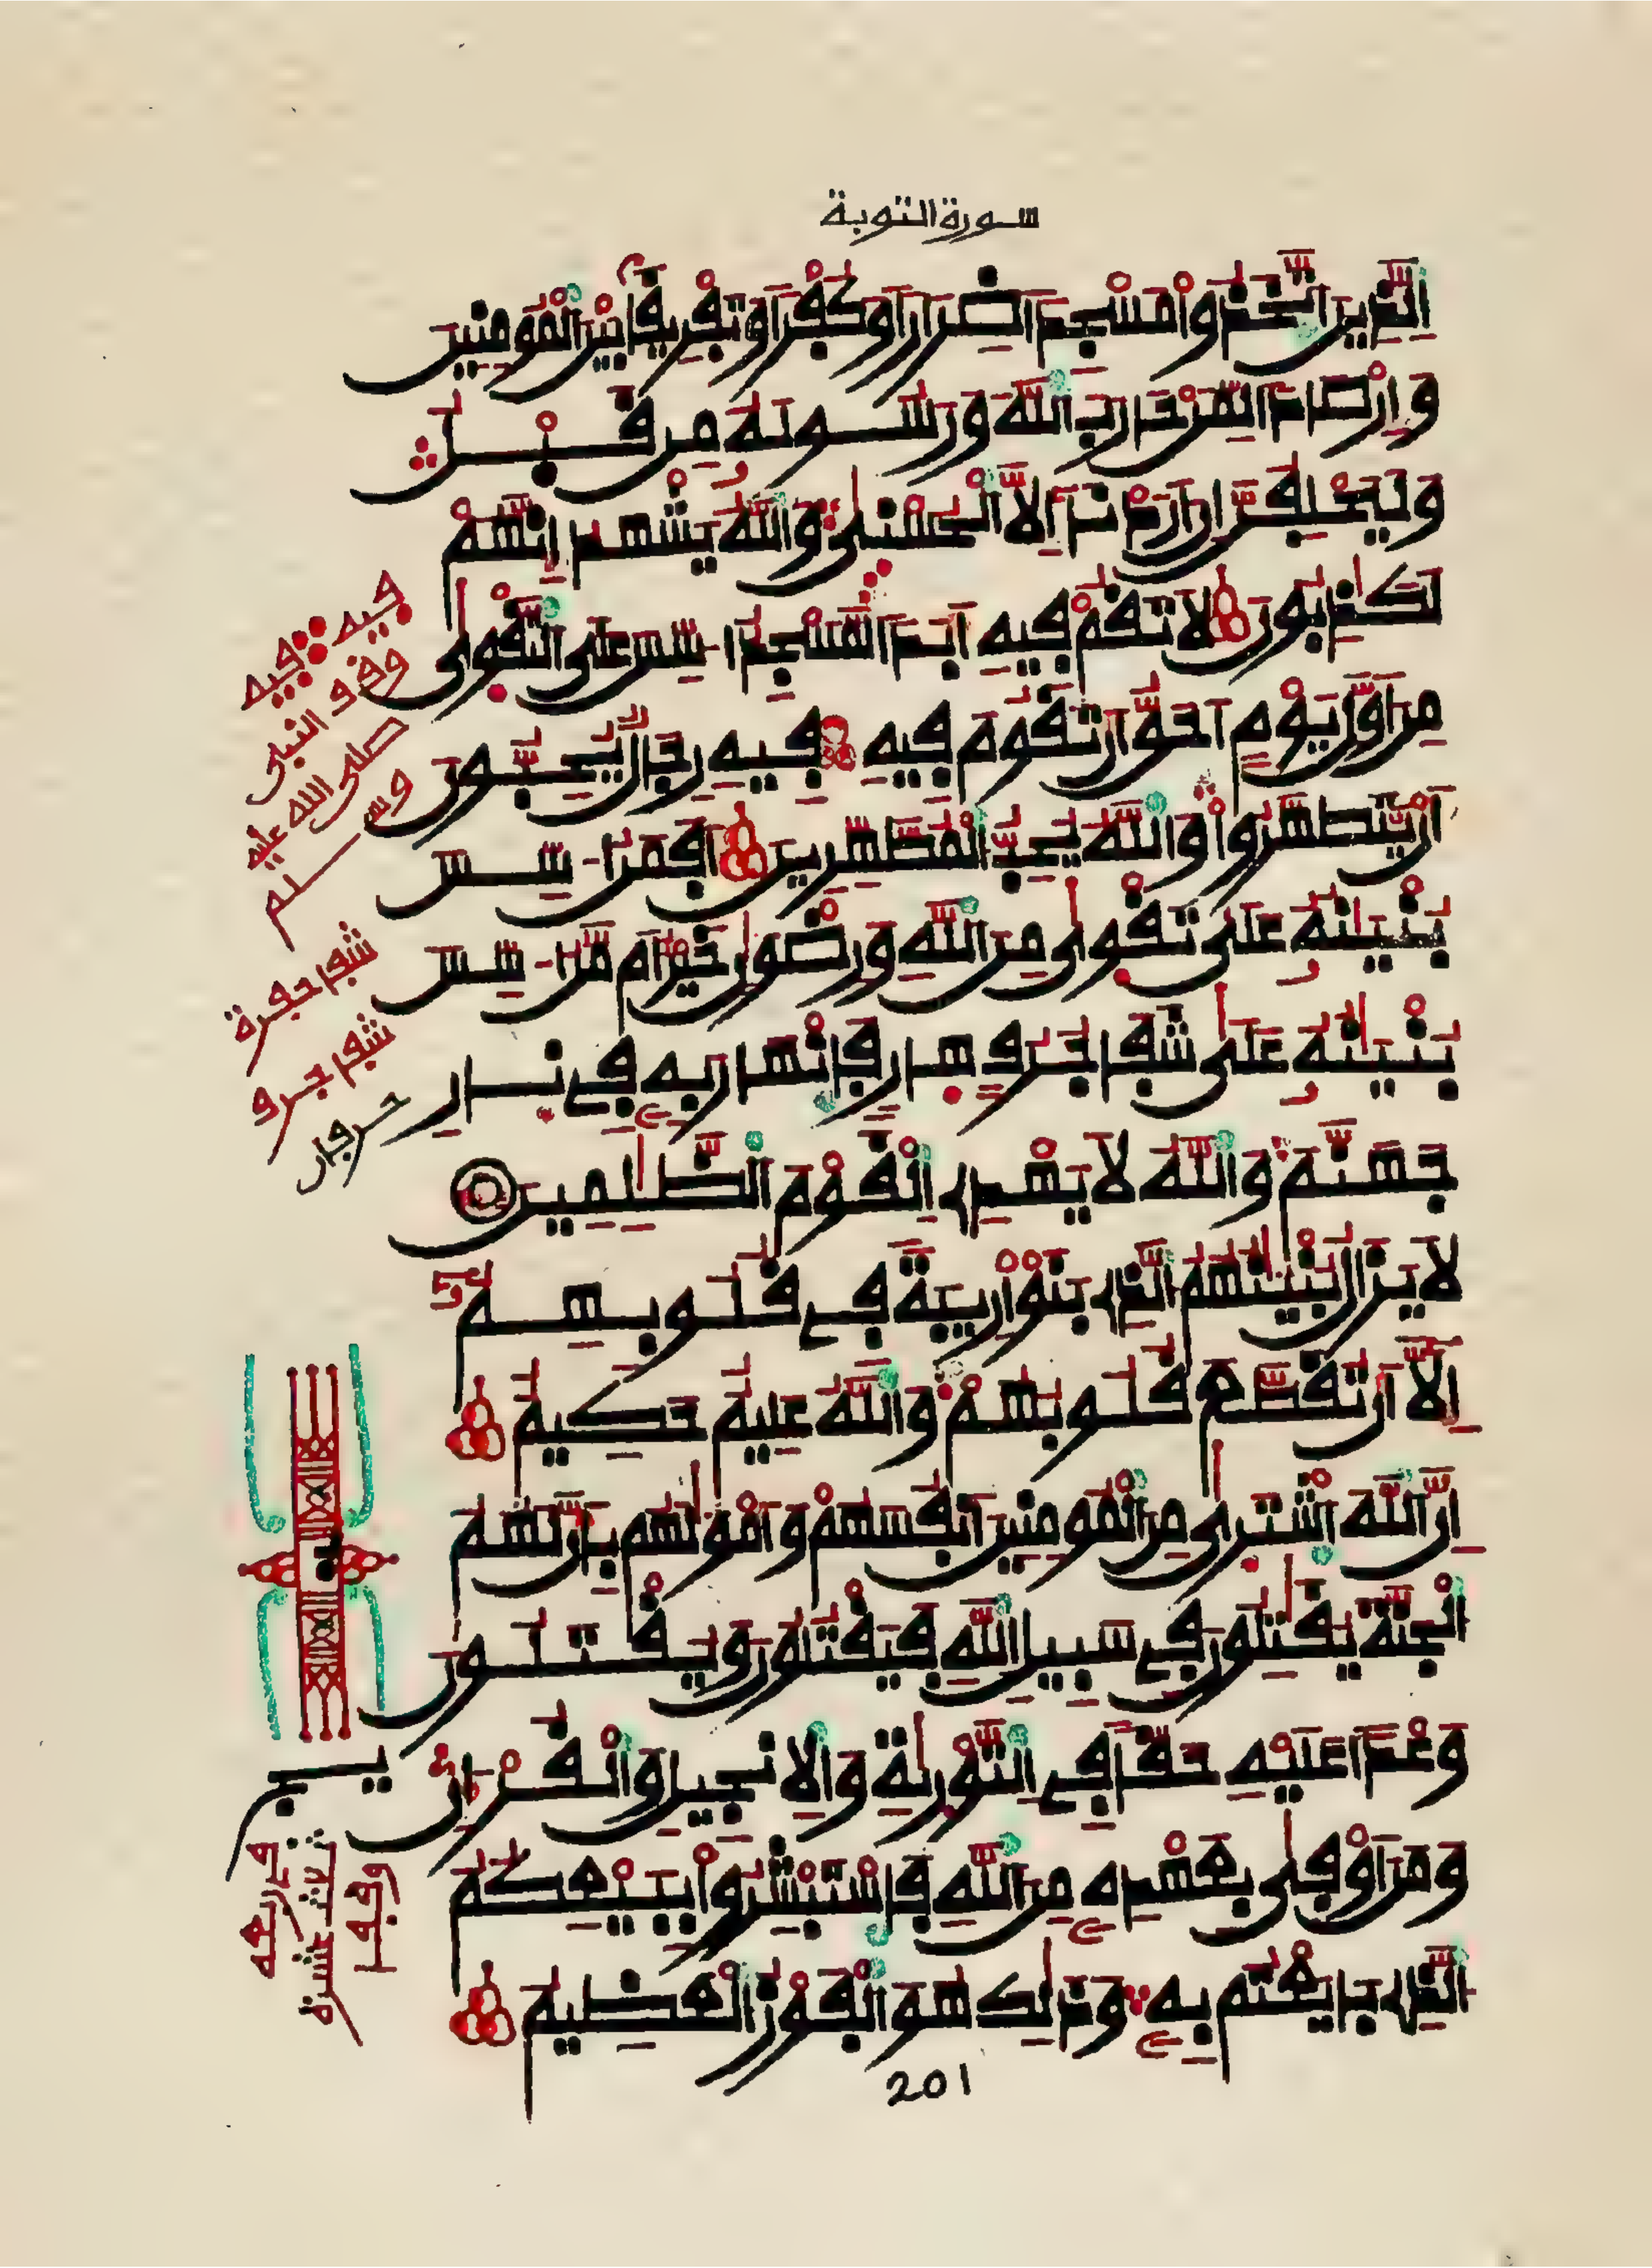 سورة التوبة
اَلذِينَ اَتَّخَذُواْ مَسْجِداً ضِرَاراً وَكُفْراً وَتَفْرِيقاً بَيْنَ اَلْمُومِنِينَ
وَإِرْصَاداً لِّمَنْ حَارَبَ اَللَّهَ وَرَسُولَهُ مِن قَبْلُ
وَلَيَحْلِفُنَّ إِنْ أَرَدْنَا إِلاَّ اَلْحُسْنىٰ وَاللَّهُ يَشْهَدُ إِنَّهُمْ
لَكَٰذِبُونَ لاَ تَقُمْ فِيهِ أَبَداً لَّمَسْجِدٌ اسِّسَ عَلَى اَلتَّقْوىٰ
مِنَ اَوَّلِ يَوْمٍ اَحَقُّ أَن تَقُومَ فِيهِ فِيهِ رِجَالٌ يُحِبُّونَ
أَنْ يَّتَطَهَّرُواْ وَاللَّهُ يُحِبُّ اَلْمُطَّهِّرِينَ أَفَمَنُ اسِّسَ
بُنْيَٰنُهُ عَلَىٰ تَقْوىٰ مِنَ اَللَّهِ وَرِضْوَٰنٍ خَيْرٌ اَم مَّنُ اسِّسَ
بُنْيَٰنُهُ عَلَىٰ شَفَا جُرُفٍ هِارٍ فَانْهَارَ بِهِ فِي نَارِ
جَهَنَّمَ وَاللَّهُ لاَ يَهْدِي اِلْقَوْمَ اَلظَّٰلِمِينَ
لاَ يَزَالُ بُنْيَٰنُهُمُ اَلذِي بَنَوْاْ رِيبَةً فِي قُلُوبِهِمُ
إِلاَّ أَن تُقَطَّعَ قُلُوبُهُمْ وَاللَّهُ عَلِيمٌ حَكِيمٌ
إِنَّ اَللَّهَ اَشْتَرىٰ مِنَ اَلْمُومِنِينَ أَنفُسَهُمْ وَأَمْوَٰلَهُم بِأَنَّ لَهُمُ
اَلْجَنَّةَ يُقَٰتِلُونَ فِي سَبِيلِ اِللَّهِ فَيَقْتُلُونَ وَيُقْتَلُونَ
وَعْداً عَلَيْهِ حَقّاً فِي اِلتَّوْرىٰةِ وَالاِنجِيلِ وَالْقُرْءَانِ
وَمَنَ اَوْفىٰ بِعَهْدِهِ مِنَ اَللَّهِ فَاسْتَبْشِرُواْ بِبَيْعِكُمُ
اُلذِي بَايَعْتُم بِهِ وَذَٰلِكَ هُوَ اَلْفَوْزُ الْعَظِيمُ
201
فيه فيه
وقف النبي
صلى الله عليه
وسلم
شفا حفرة
شفا جرف
حرفان
وقفا
ثلاث عشرة
في ربعه